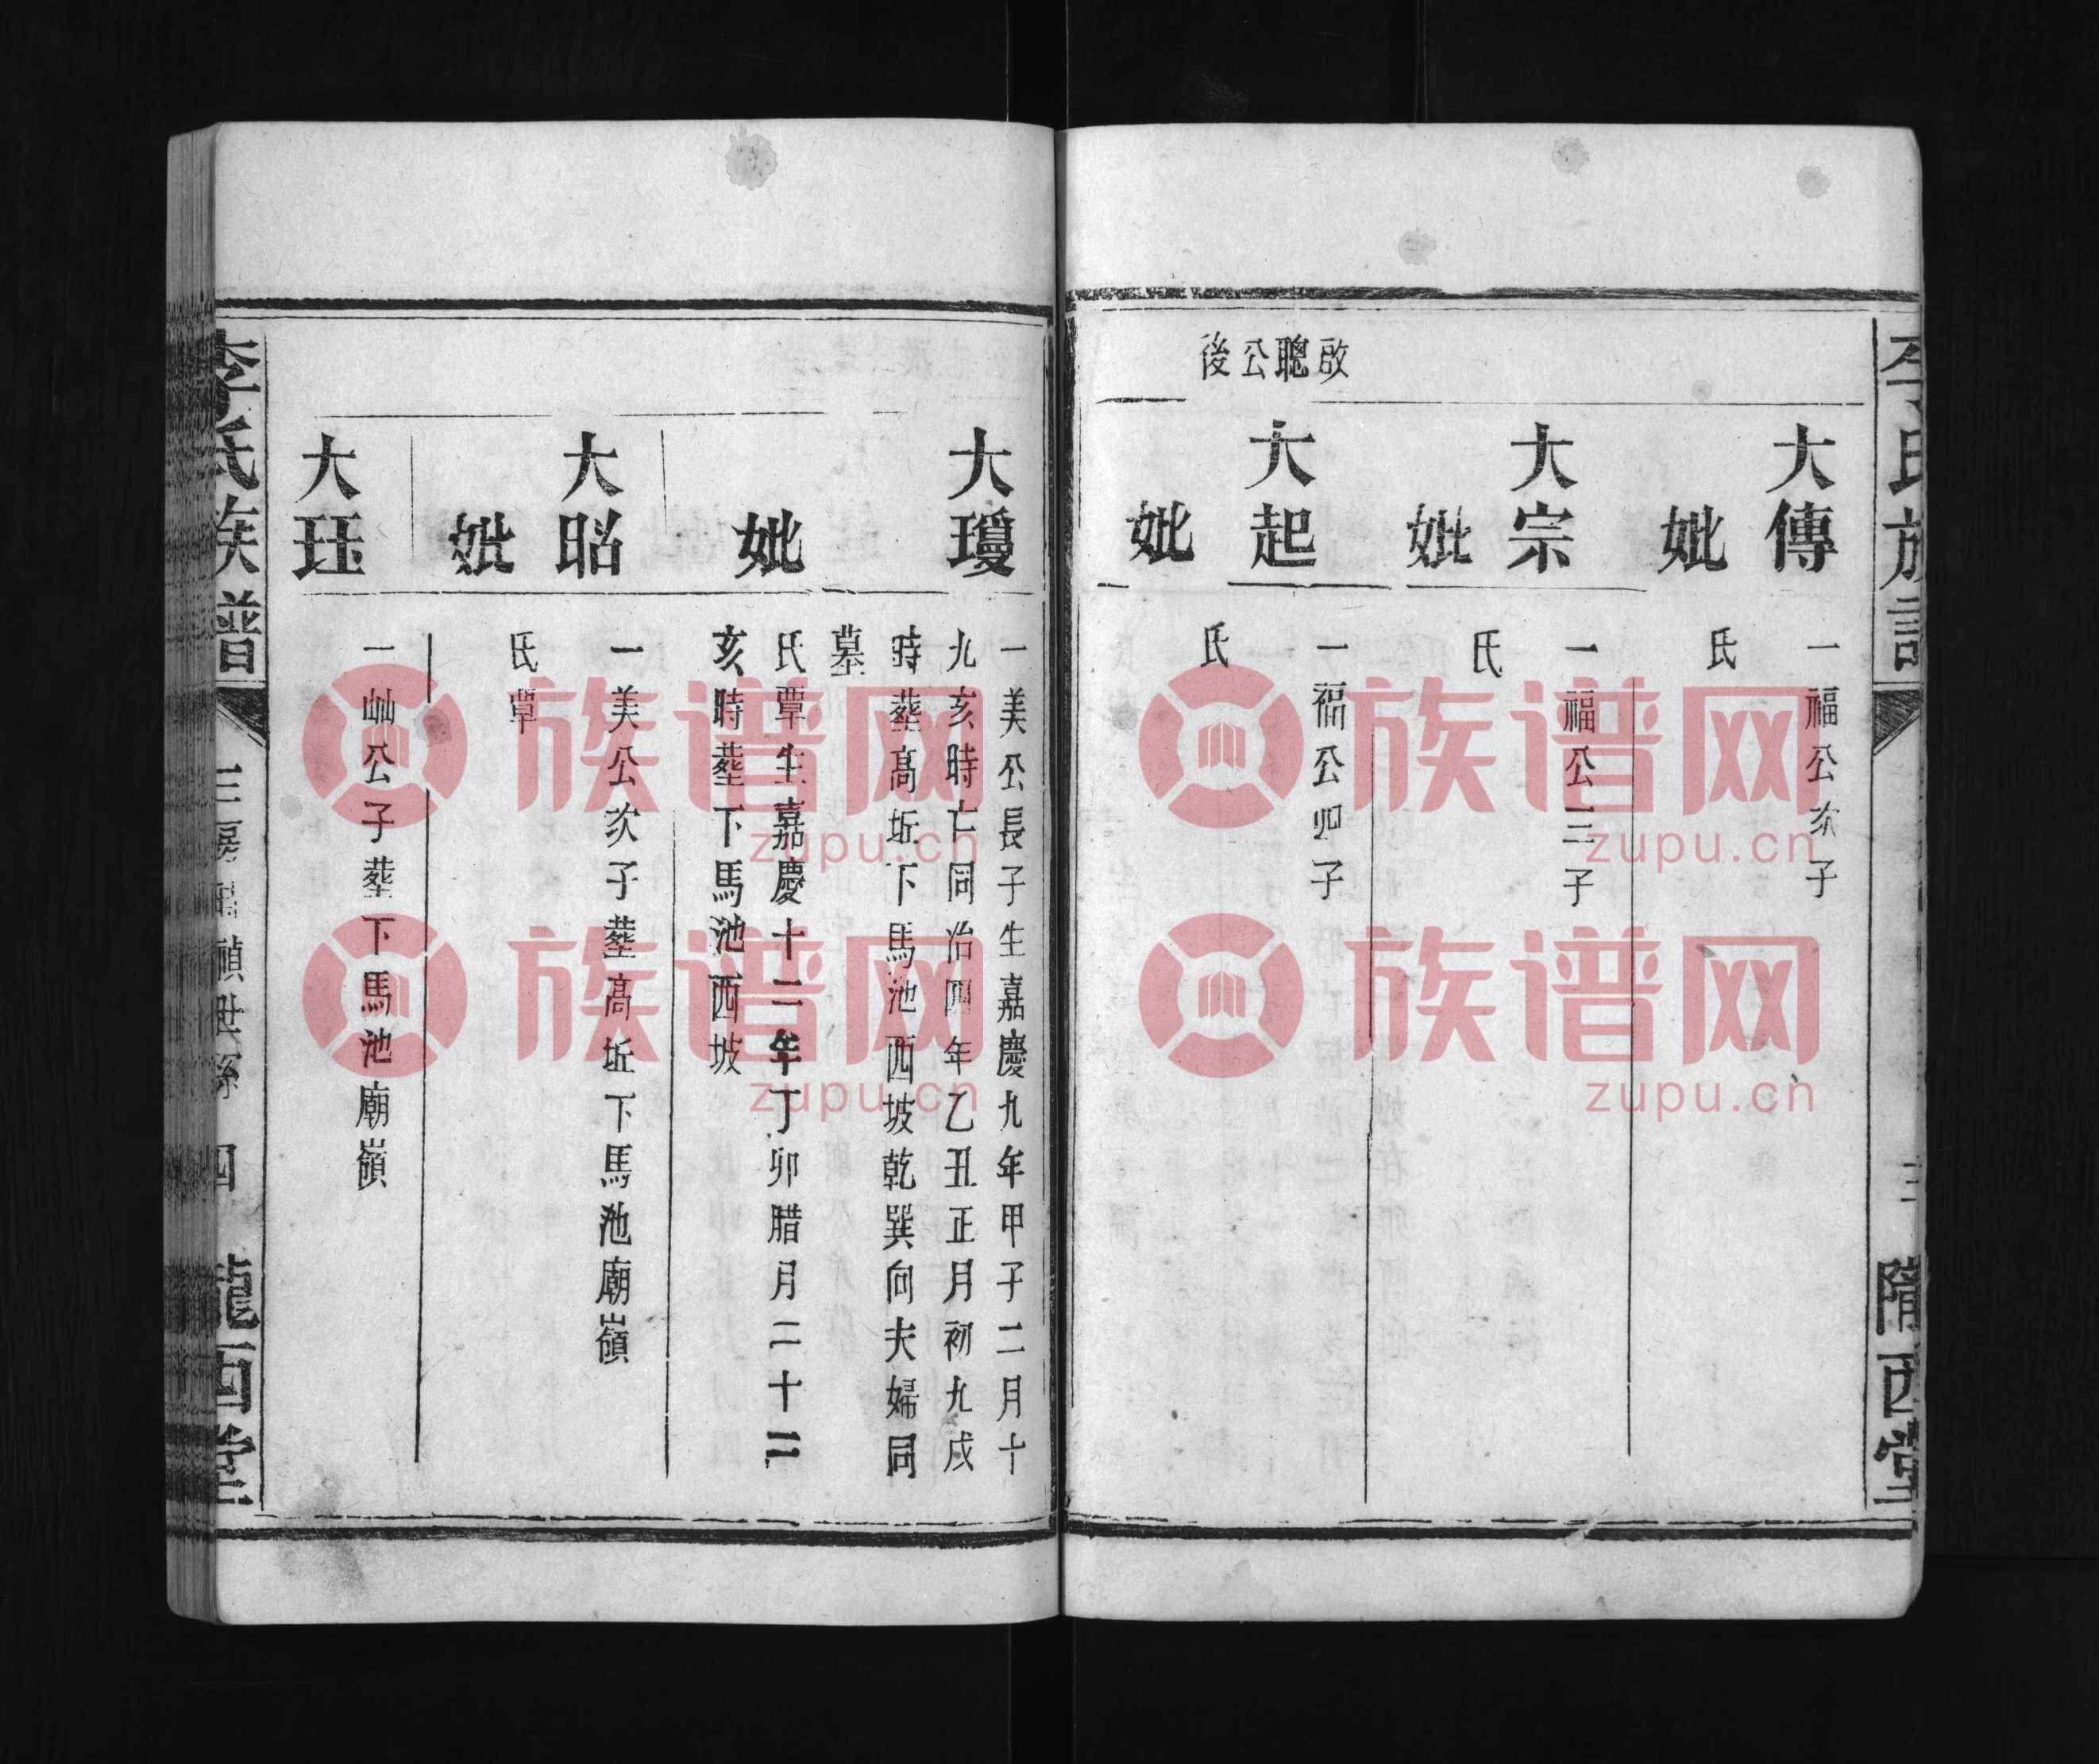 李氏族譜
三
隴西堂
啟聰公後
大傳
一福公次子
妣
氏
大宗
一福公三子
妣
氏
大起
一福公四子
妣
氏
大瓊
一美公長子生嘉慶九年甲子二月十
九亥時亡同治四年乙丑正月初九戌
時塟髙坵下馬池西坡乾巽向夫婦同
墓
妣
氏覃生嘉慶十二年丁卯腊月二十三
亥時塟下馬池西坡
大昭
一美公次子塟髙坵下馬池廟嶺
妣
氏覃
大珏
一屾公子塟下馬池廟嶺
李氏族譜
三房 禎世系
四
隴西堂
族谱网
zupu.cn
族谱网
zupu.cn
族谱网
zupu.cn
族谱网
zupu.cn